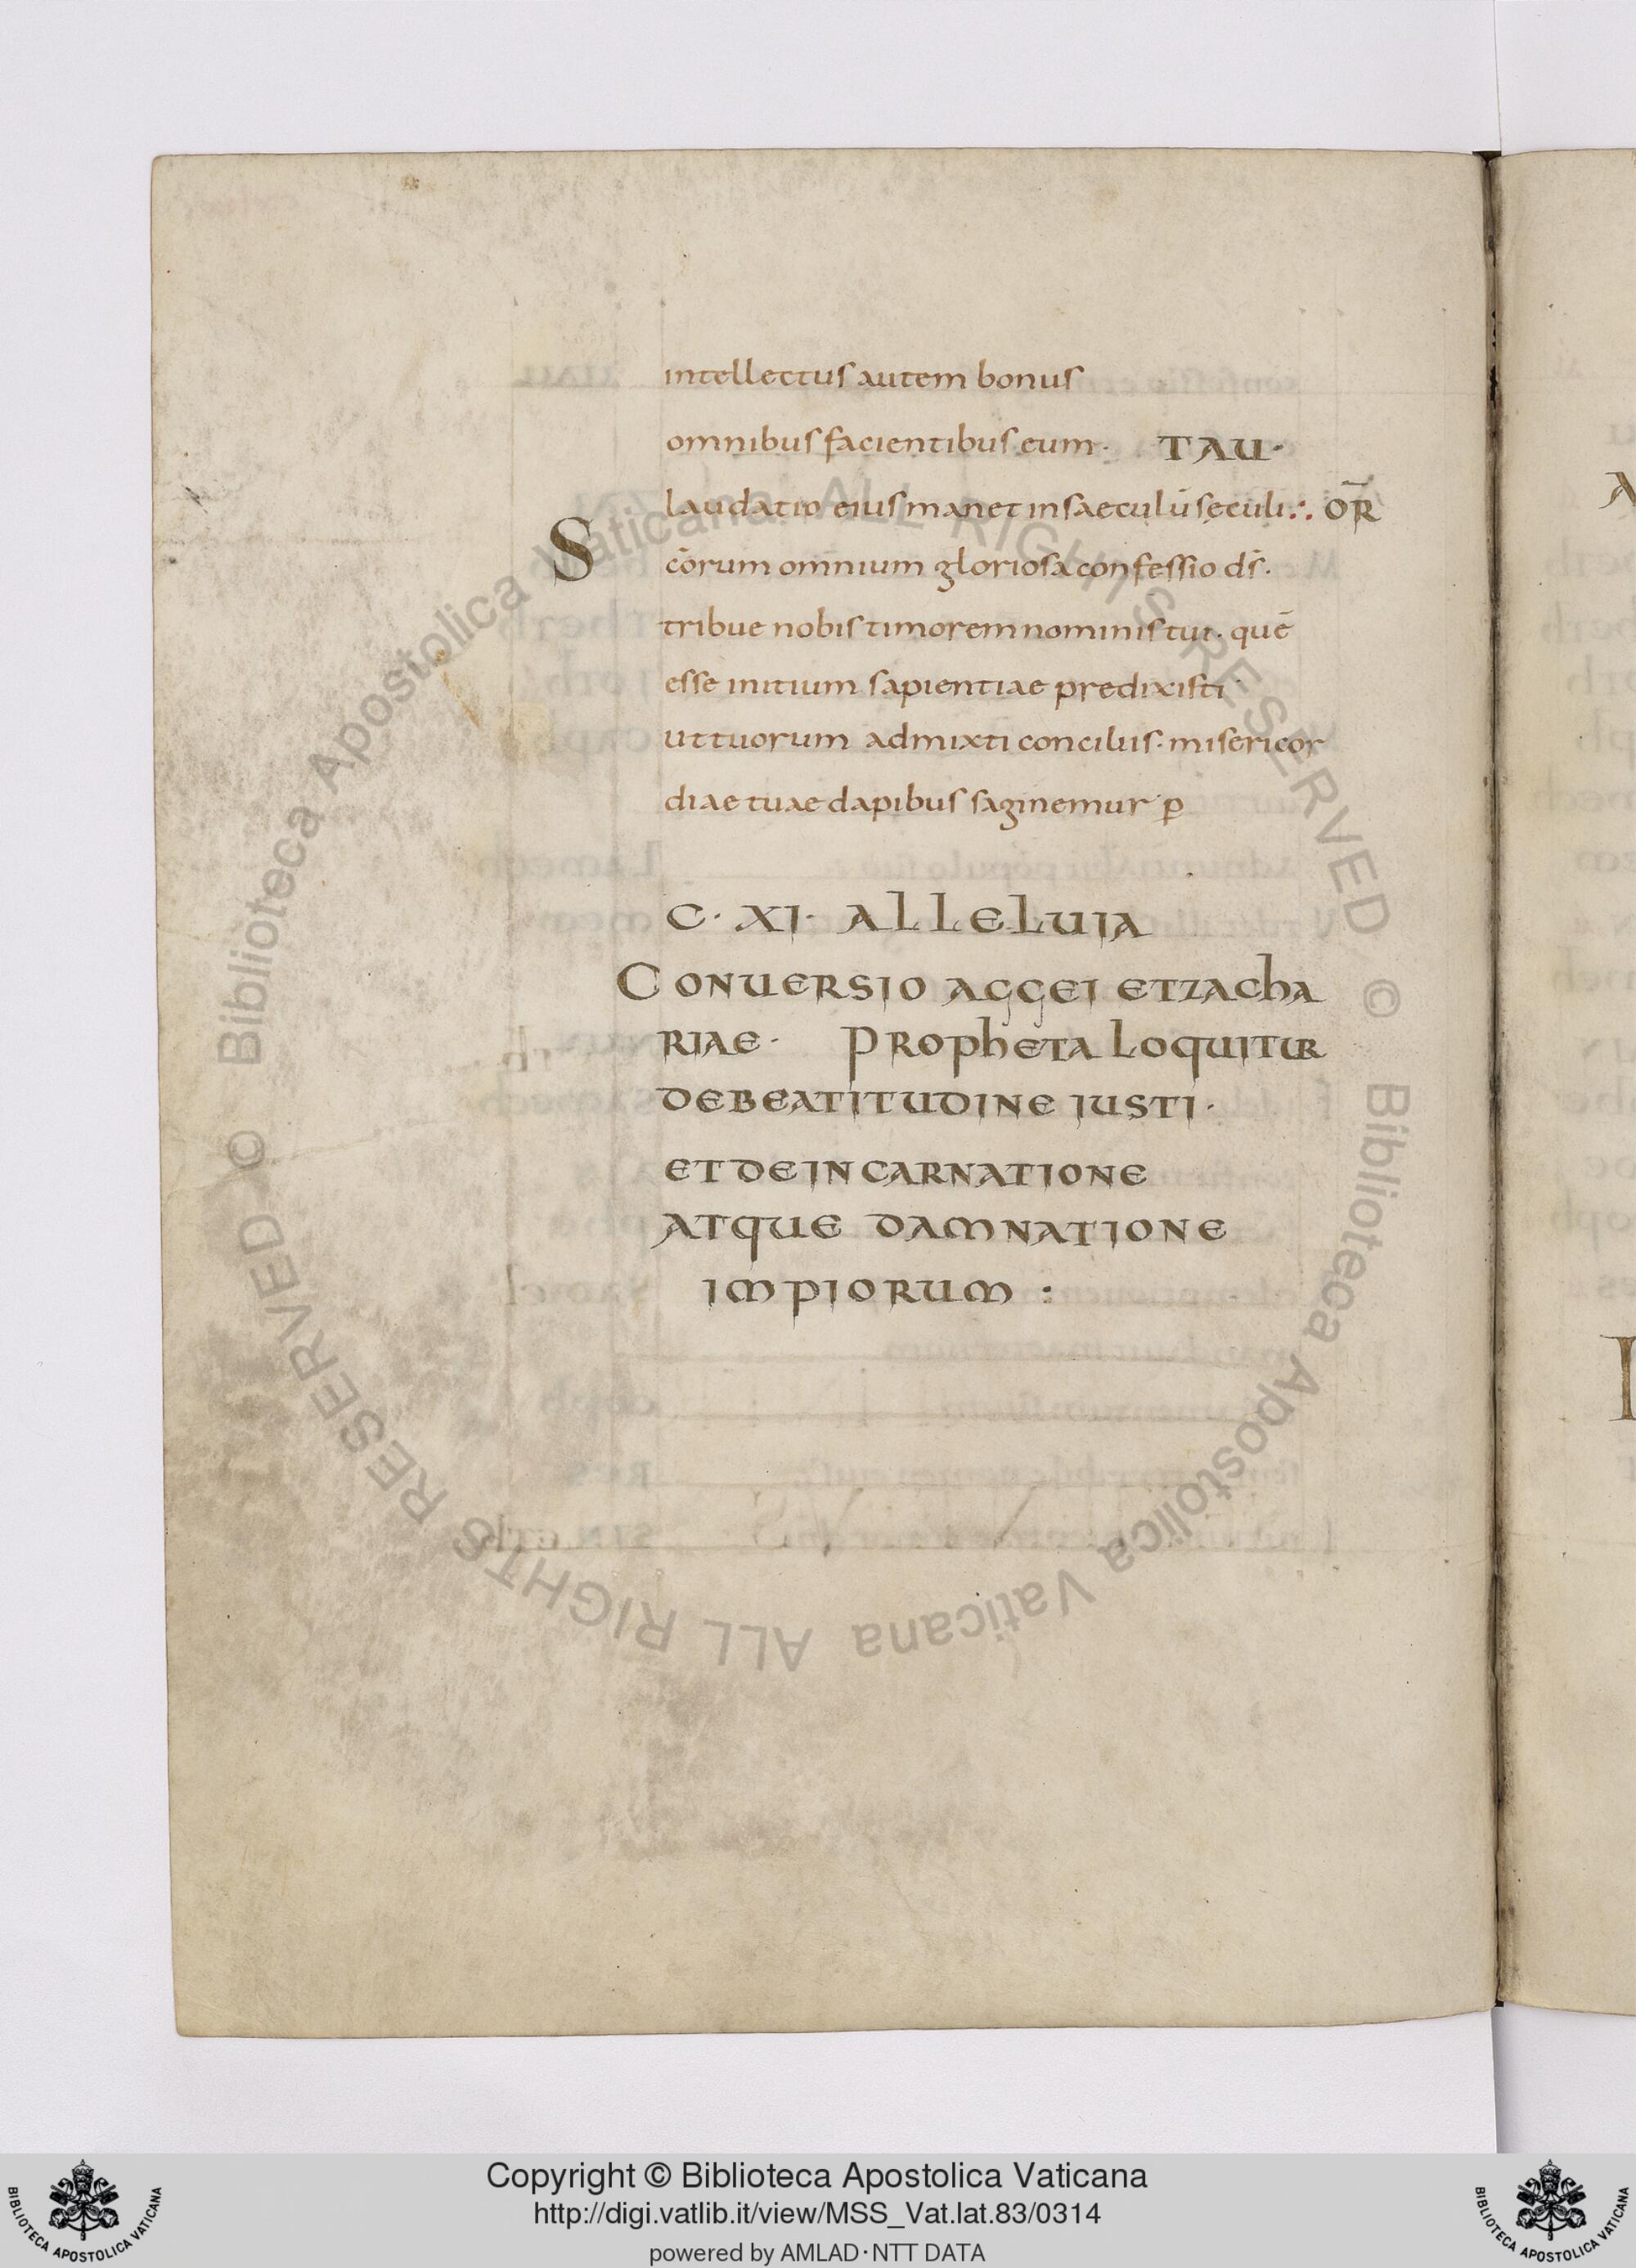 intellectus autem bonus
omnibus facientibus eum· TAU·
laudatio eius manet in saeculū seculi:· OR̄
S c̄orum omnium gloriosa confessio d̄s·
tribue nobis timorem nominis tui· quē
esse initium sapientiae predixisti
ut tuorum admixti conciliis· misericor
diae tuae dapibus saginemur· p
C· XI· ALLELUIA
CONUERSIO AGGEI ET ZACHA
RIAE· PROPHETA LOQUITUR
DE BEATITUDINE IUSTI·
ET DE INCARNATIONE
ATQUE DAMNATIONE
IMPIORUM :
Biblioteca Apostolica Vaticana ALL RIGHTS RESERVED ©
Biblioteca Apostolica Vaticana ALL RIGHTS RESERVED ©
Copyright © Biblioteca Apostolica Vaticana
http://digi.vatlib.it/view/MSS_Vat.lat.83/0314
powered by AMLAD·NTT DATA
BIBLIOTECA APOSTOLICA VATICANA
BIBLIOTECA APOSTOLICA VATICANA